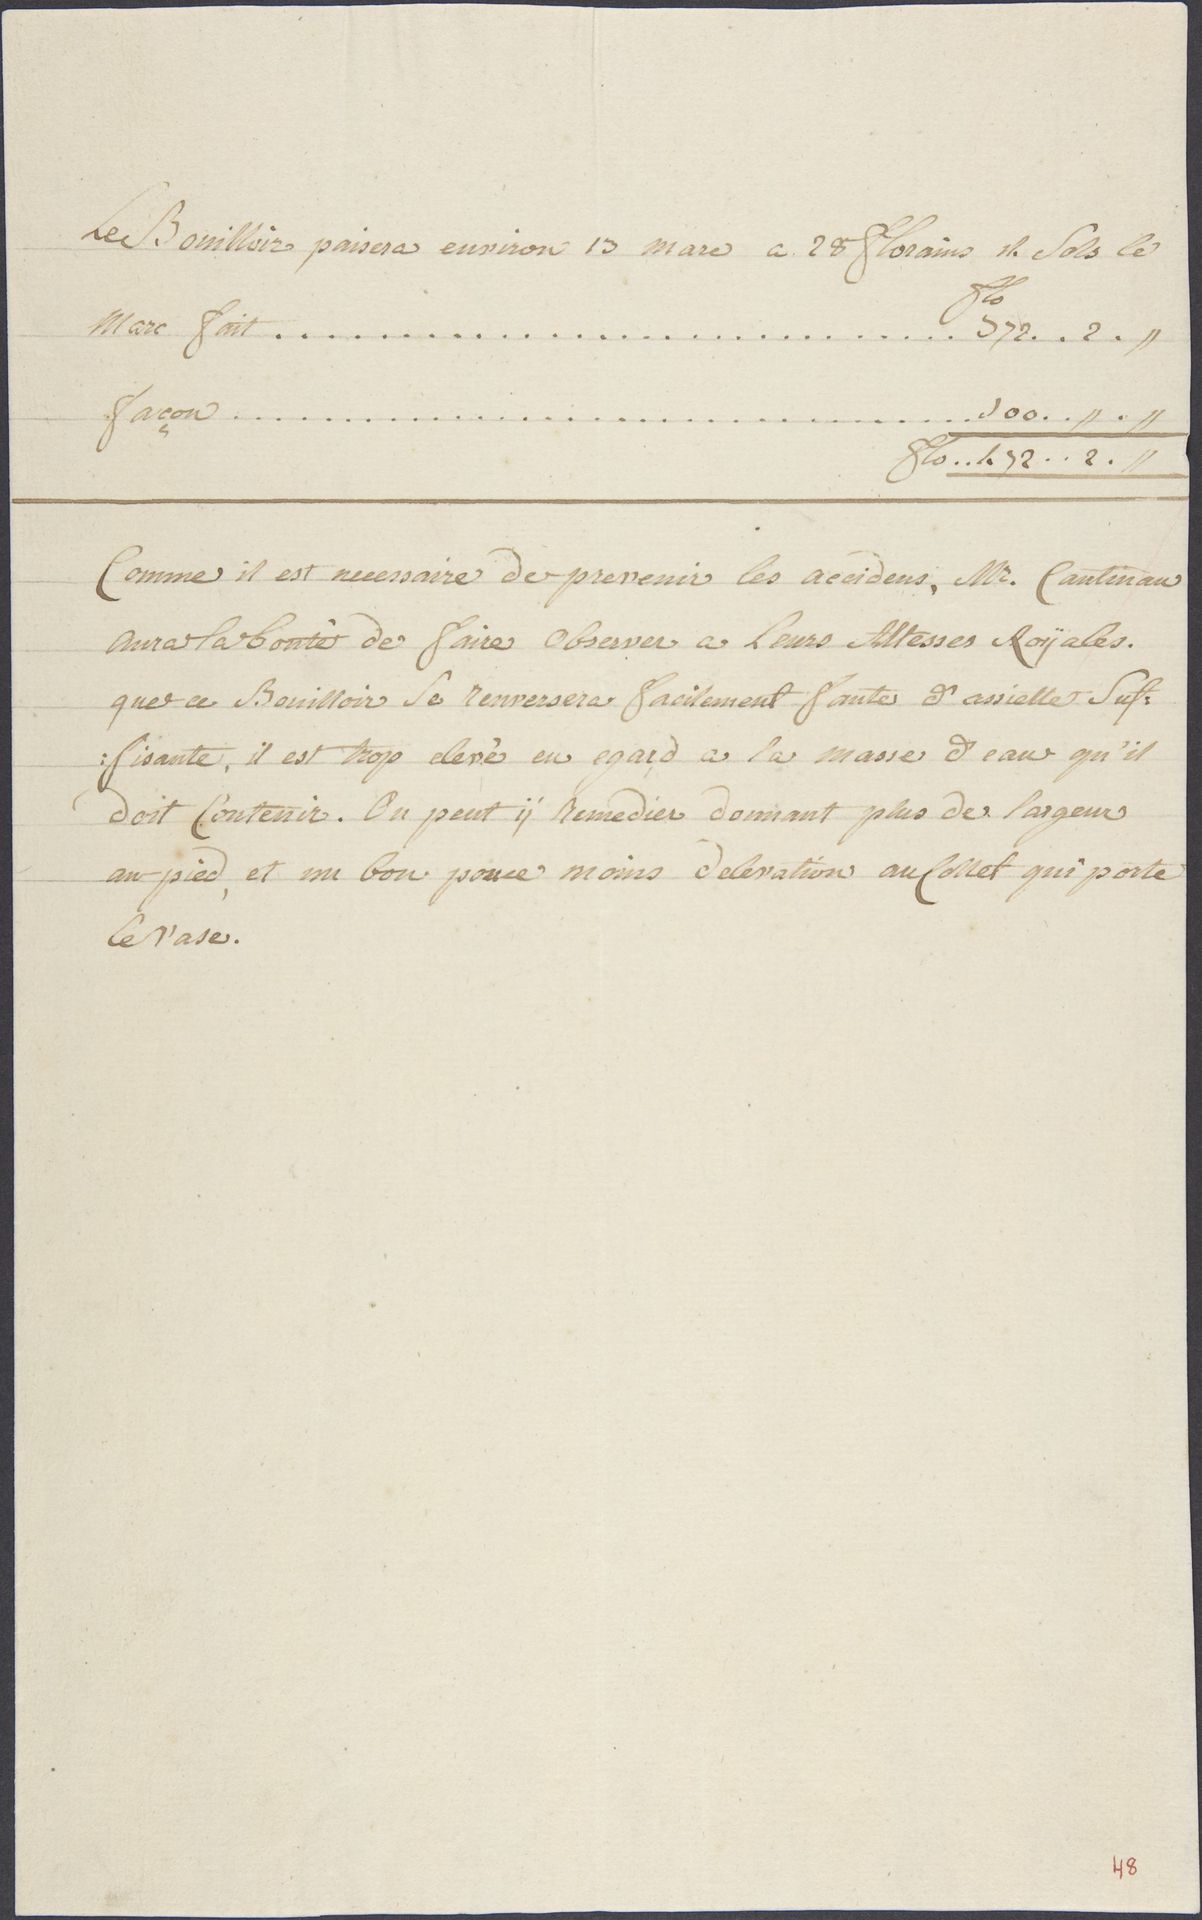 Le Bouilloir paisera environ 13 marc a 28 florains 14 Sols le
flo
Marc fait .............................. 372..2.〃
façon .............................. 100..〃.〃
flo..472..2.〃
Comme il est necessaire de prevenir les accidens, Mr. Cautinau
aura la bonté de faire observer a Leurs Altesses Roÿales.
que ce Bouilloir se renversera facilement faute d'assiette Suf:
:fisante, il est trop elevé eu egard a la masse d'eau qu'il
doit Contenir. On peut ÿ remedier donnant plus de largeur
au pied, et un bon pouce moins delevation au Collet qui porte
le Vase.
48